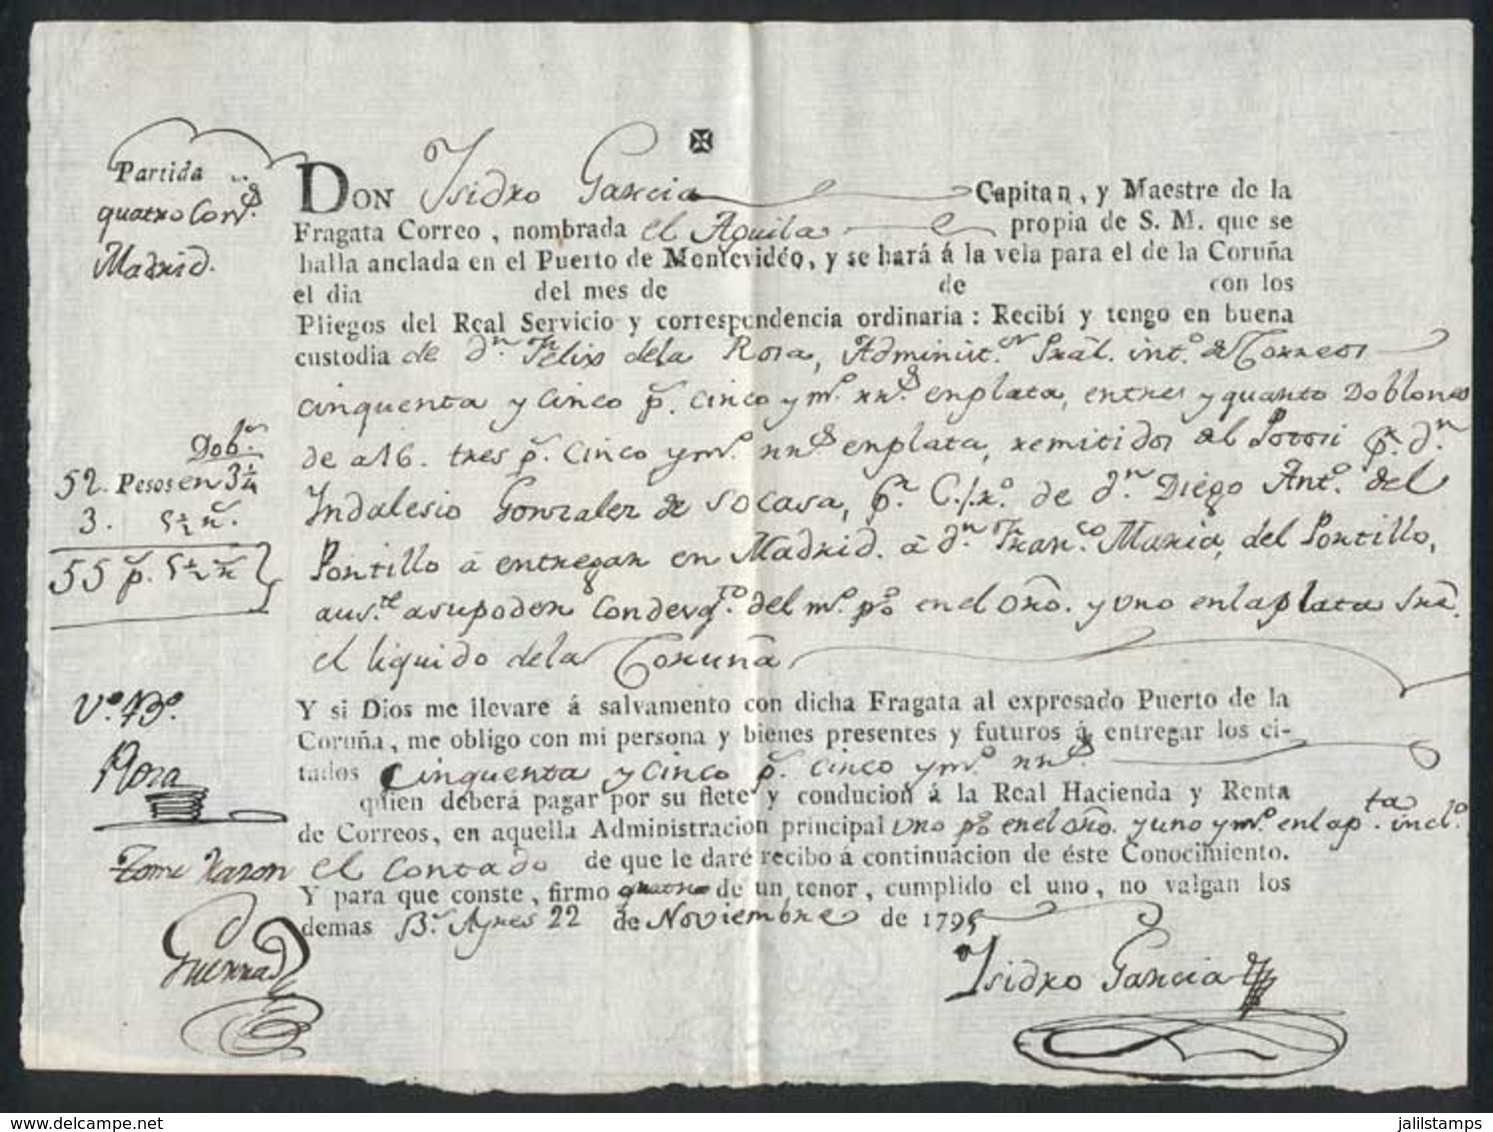 Partida
quatro Corr.s
Madrid.
DON Isidro Garcia Capitan, y Maestre de la
Fragata Correo, nombrada el Aguila propia de S. M. que se
halla anclada en el Puerto de Montevidéo, y se hará á la vela para el de la Coruña
el dia del mes de de con los
Pliegos del Real Servicio y correspondencia ordinaria: Recibí y tengo en buena
custodia de d.n Felix dela Rosa, Administ.or Gral. int.o de Correos
cinquenta y cinco p.s cinco y m.o rr.s enplata, entres y quarto Doblones
de a16. tres p.s cinco y m.o rr.s enplata, remitidos del Potosi p.r d.n
Indalesio Gonzalez de Socasa, p.r C./r.o de d.n Diego Ant.o del
Portillo á entregar en Madrid. á d.n Fran.co Maria, del Portillo,
aus.te asupoder Condesq.to del m.o p%o en el Oro. y uno enlaplata Sre.
el liquido dela Coruña
Dob.s
52. Pesos en 3¼
3. 5½ r.s
55 p.s 5½ r.s
V.o B.o
Rosa
Y si Dios me llevare á salvamento con dicha Fragata al expresado Puerto de la
Coruña, me obligo con mi persona y bienes presentes y futuros á entregar los ci-
tados Cinquenta y cinco p.s cinco y m.o rr.s
quien deberá pagar por su flete y conducion á la Real Hacienda y Renta
de Correos, en aquella Administracion principal uno p%o en el Oro. y uno y m.o enlap.ta incl.o
el Contado de que le daré recibo á continuacion de éste Conocimiento.
Y para que conste, firmo quatro de un tenor, cumplido el uno, no valgan los
demas B.s Ayres 22 de Noviembre de 1795
Tome Razon
Isidro Garcia
www.delcampe.net
jalilstamps